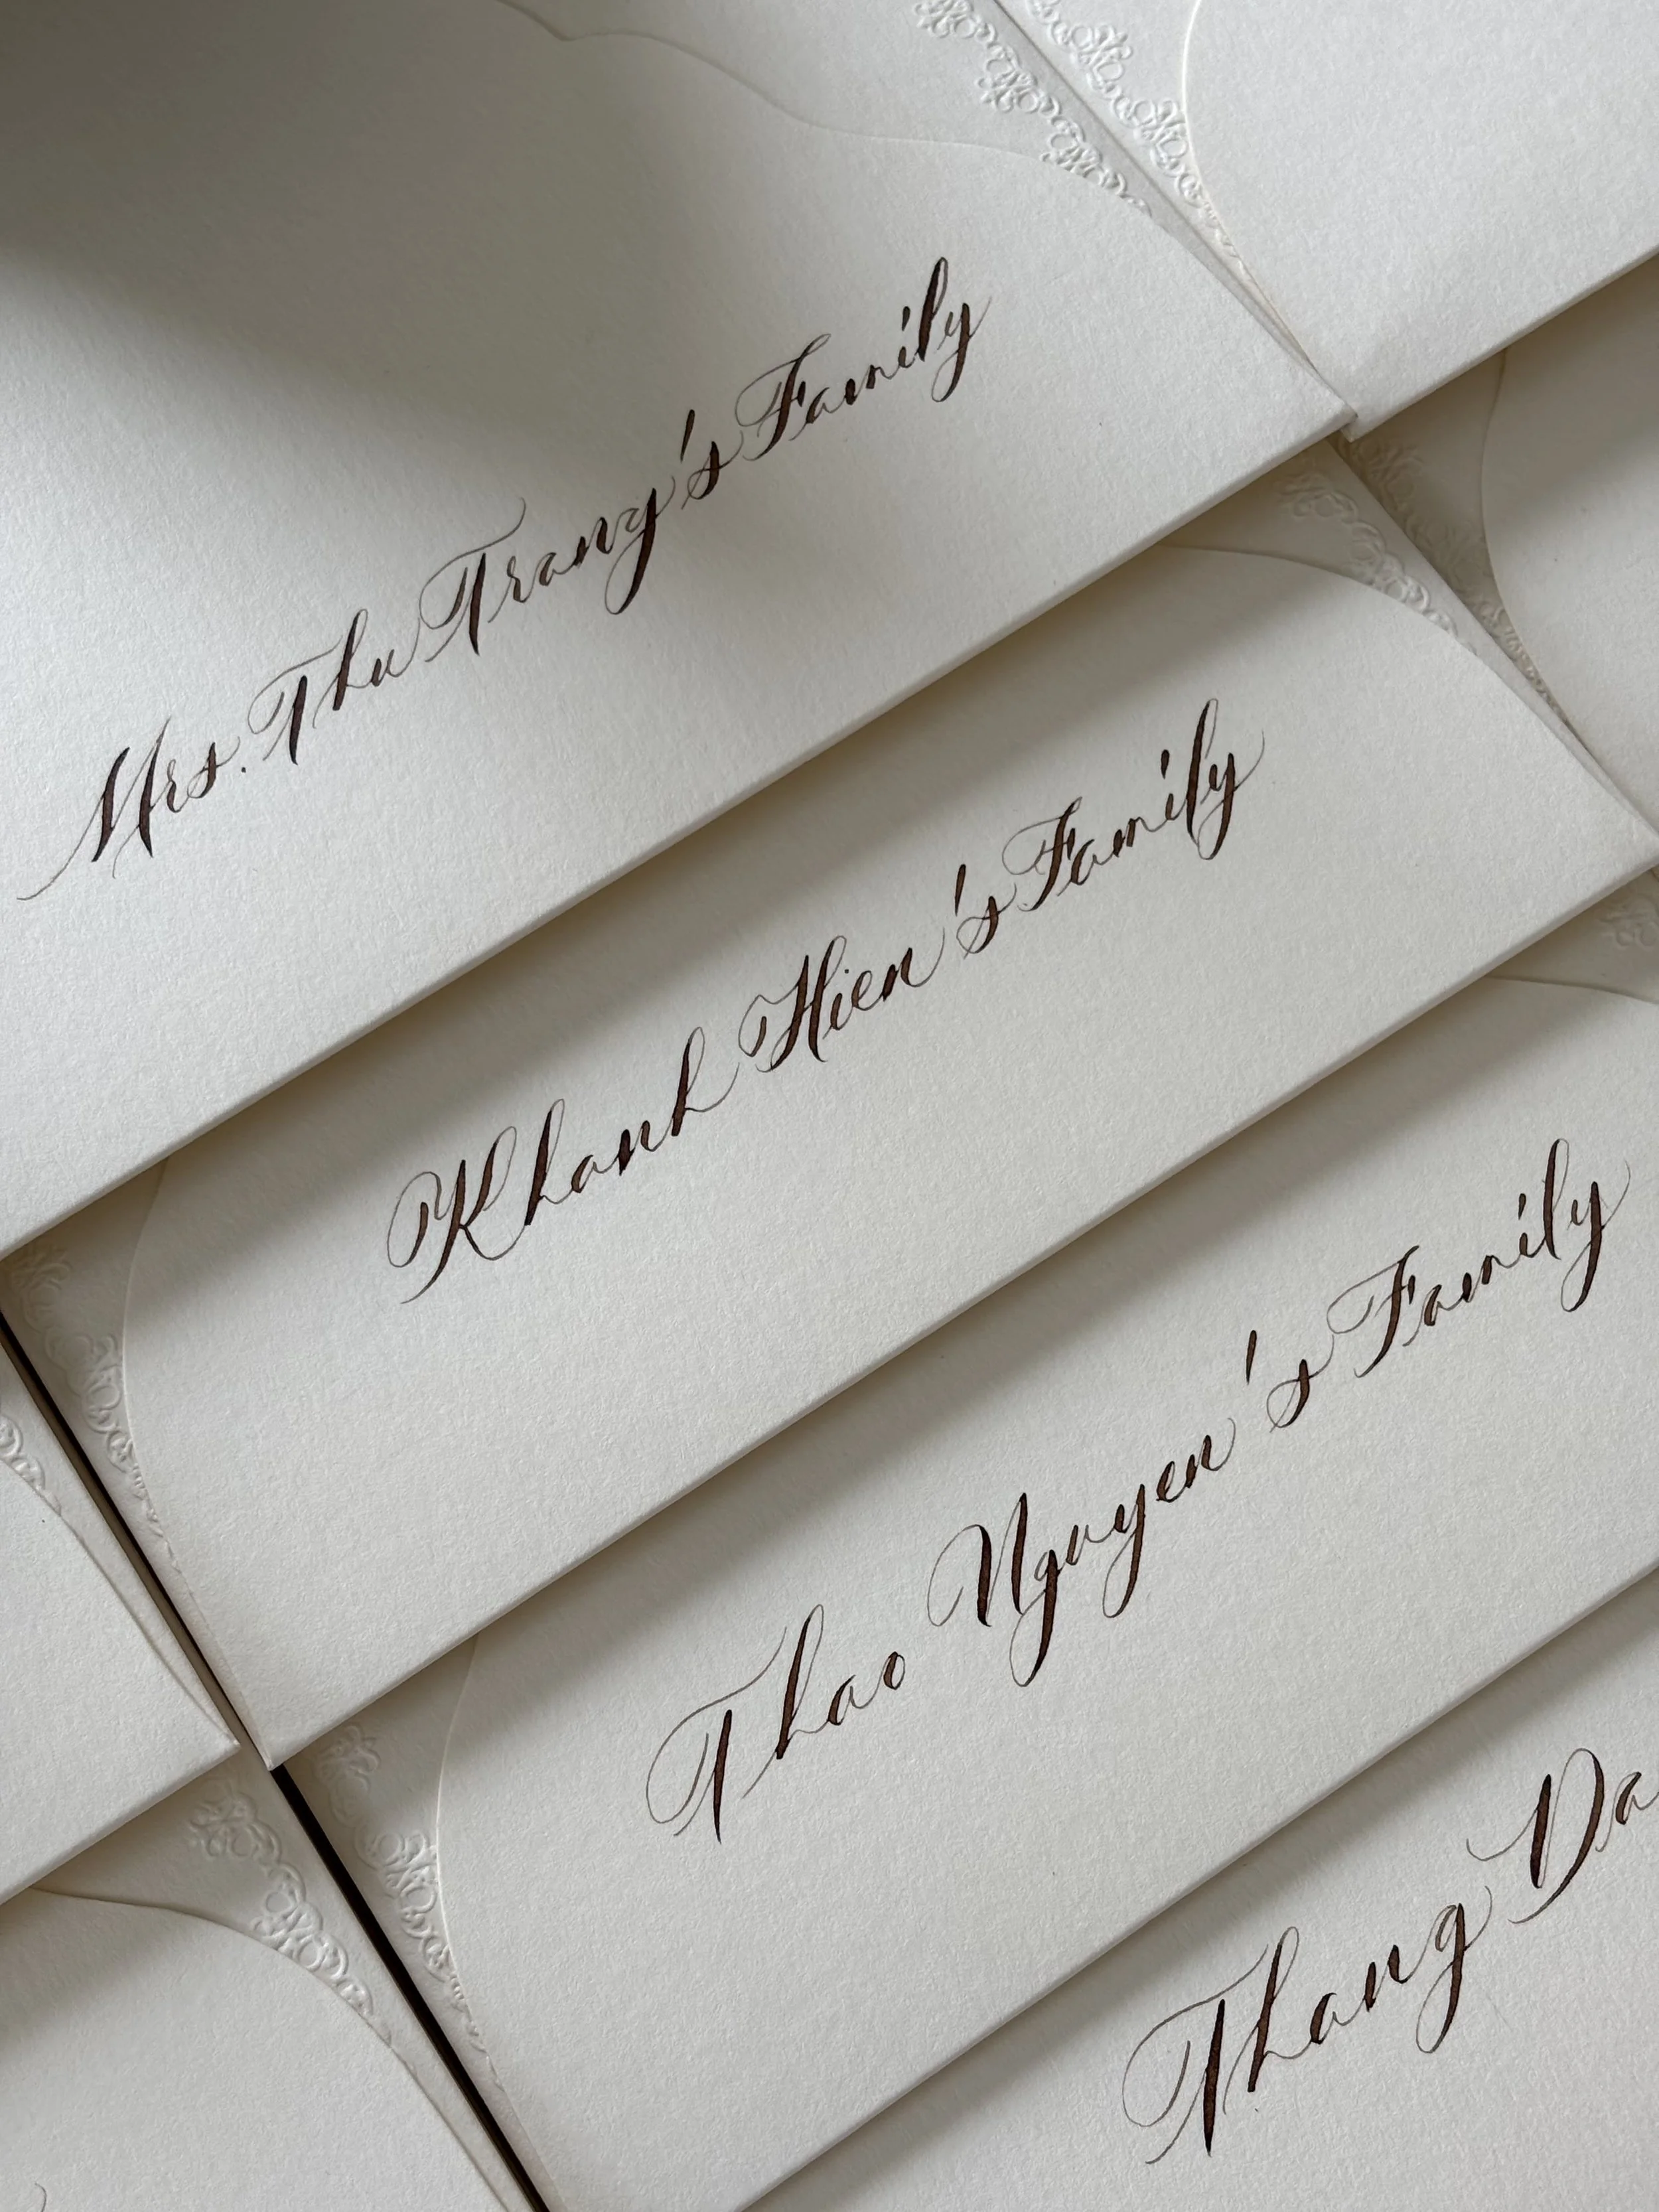 Mrs. Thu Trang's Family
Khanh Hien's Family
Thao Nguyen's Family
Thang